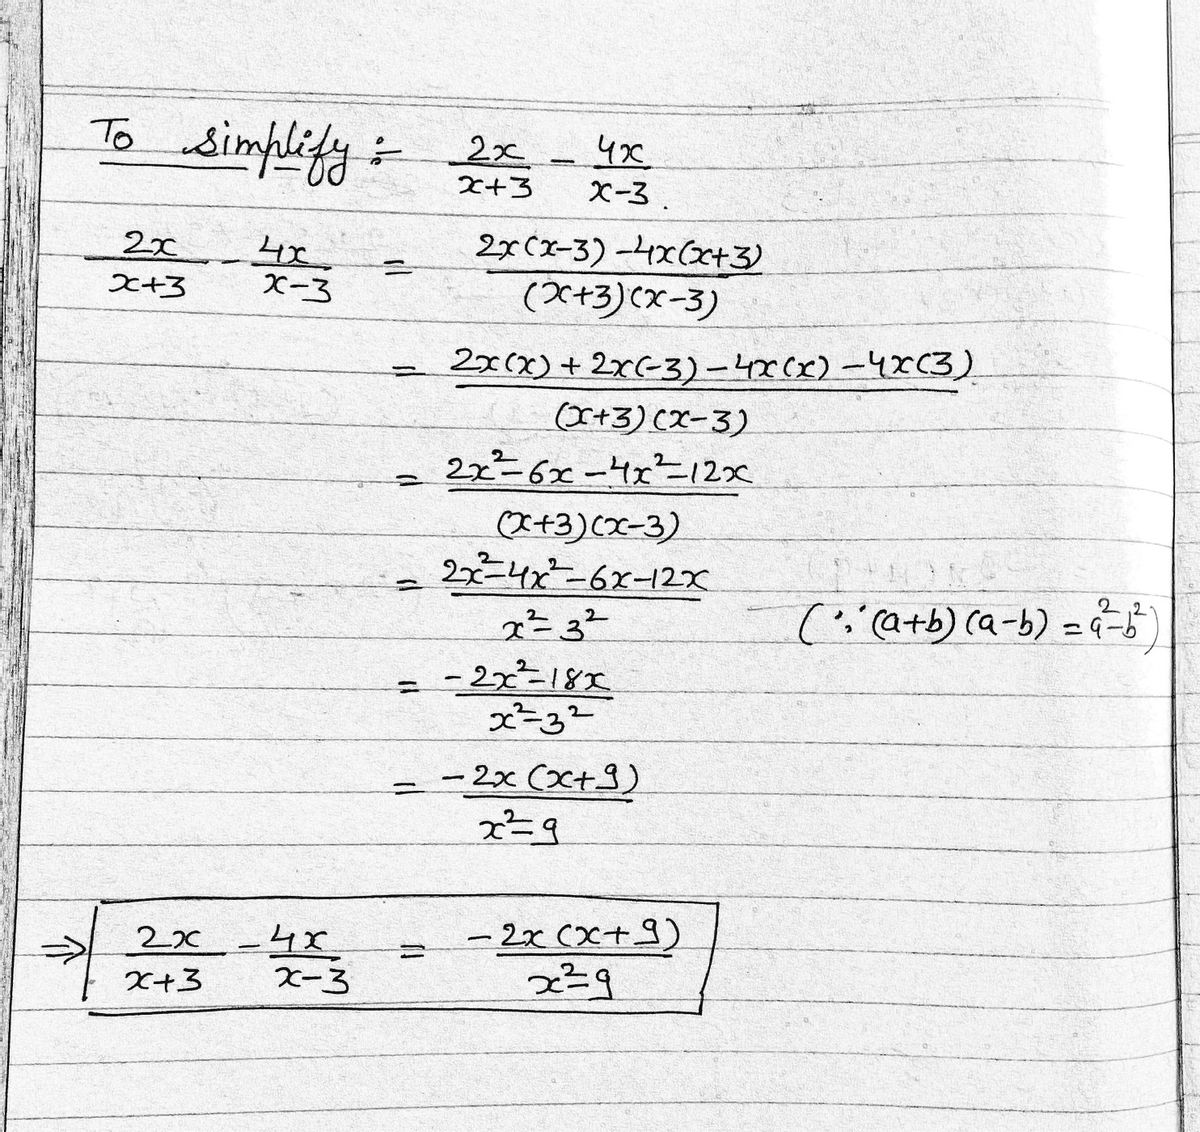 To simplify :- 2x/(x+3) - 4x/(x-3).
2x/(x+3) - 4x/(x-3) = (2x(x-3) -4x(x+3))/((x+3)(x-3))
= (2x(x) + 2x(-3) - 4x(x) - 4x(3))/((x+3)(x-3))
= (2x² - 6x - 4x² - 12x)/((x+3)(x-3))
= (2x² - 4x² - 6x - 12x)/(x² - 3²) (∵ (a+b)(a-b) = a² - b²)
= (-2x² - 18x)/(x² - 3²)
= (-2x(x+9))/(x² - 9)
⇒ 2x/(x+3) - 4x/(x-3) = (-2x(x+9))/(x² - 9)